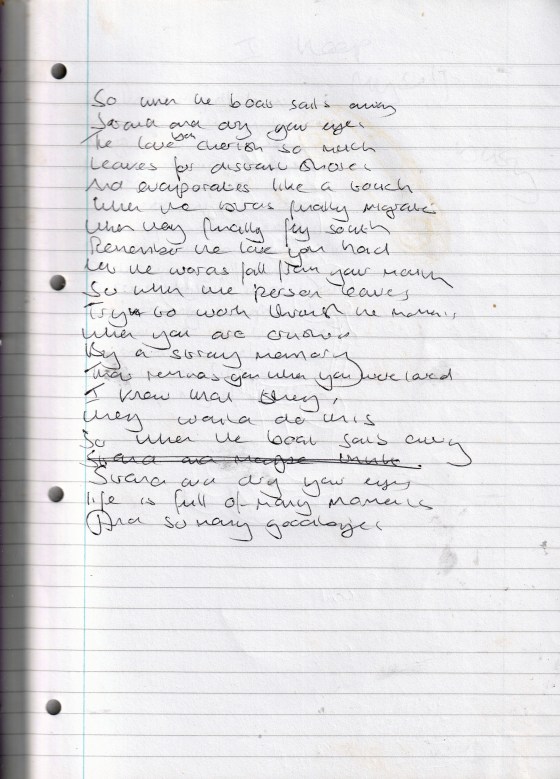 So when the boat sails away
Stand and dry your eyes
The love you cherish so much
Leaves for distant shores
And evaporates like a touch
When the birds finally migrate
When they finally fly south
Remember the love you had
Let the words fall from your mouth
So when the person leaves
Try to work through the moments
When you are crushed
By a stray memory
That reminds you when you were loved
I know that they,
They would do this
So when the boat sails away
Stand and maybe think.
Stand and dry your eyes
life is full of many moments
And so many goodbyes